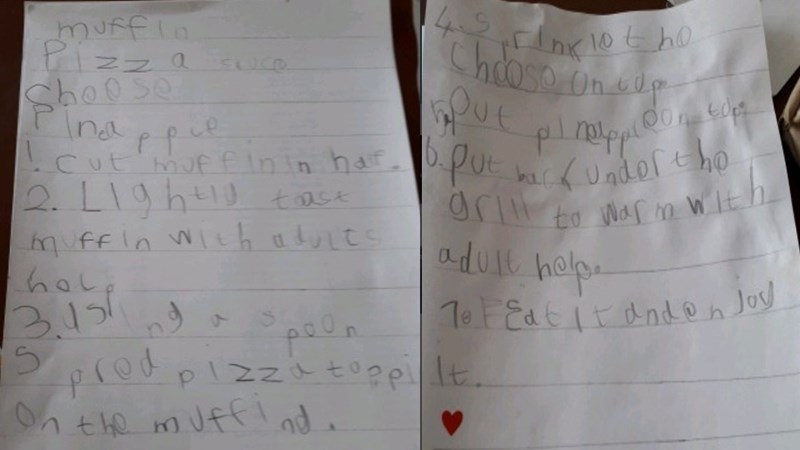 muffin
Pizza suce
Cheese
Pinapple
1. cut muffin in haf.
2. Lightly toast
muffin with adults
help
3. Using a spoon
Spred pizza toppi
on the muffind.
4. Sprinkle the
Cheese on top.
5. Put pineapple on top.
6. Put back under the
grill to warm with
adult help.
7. Eat it and enjoy
It.